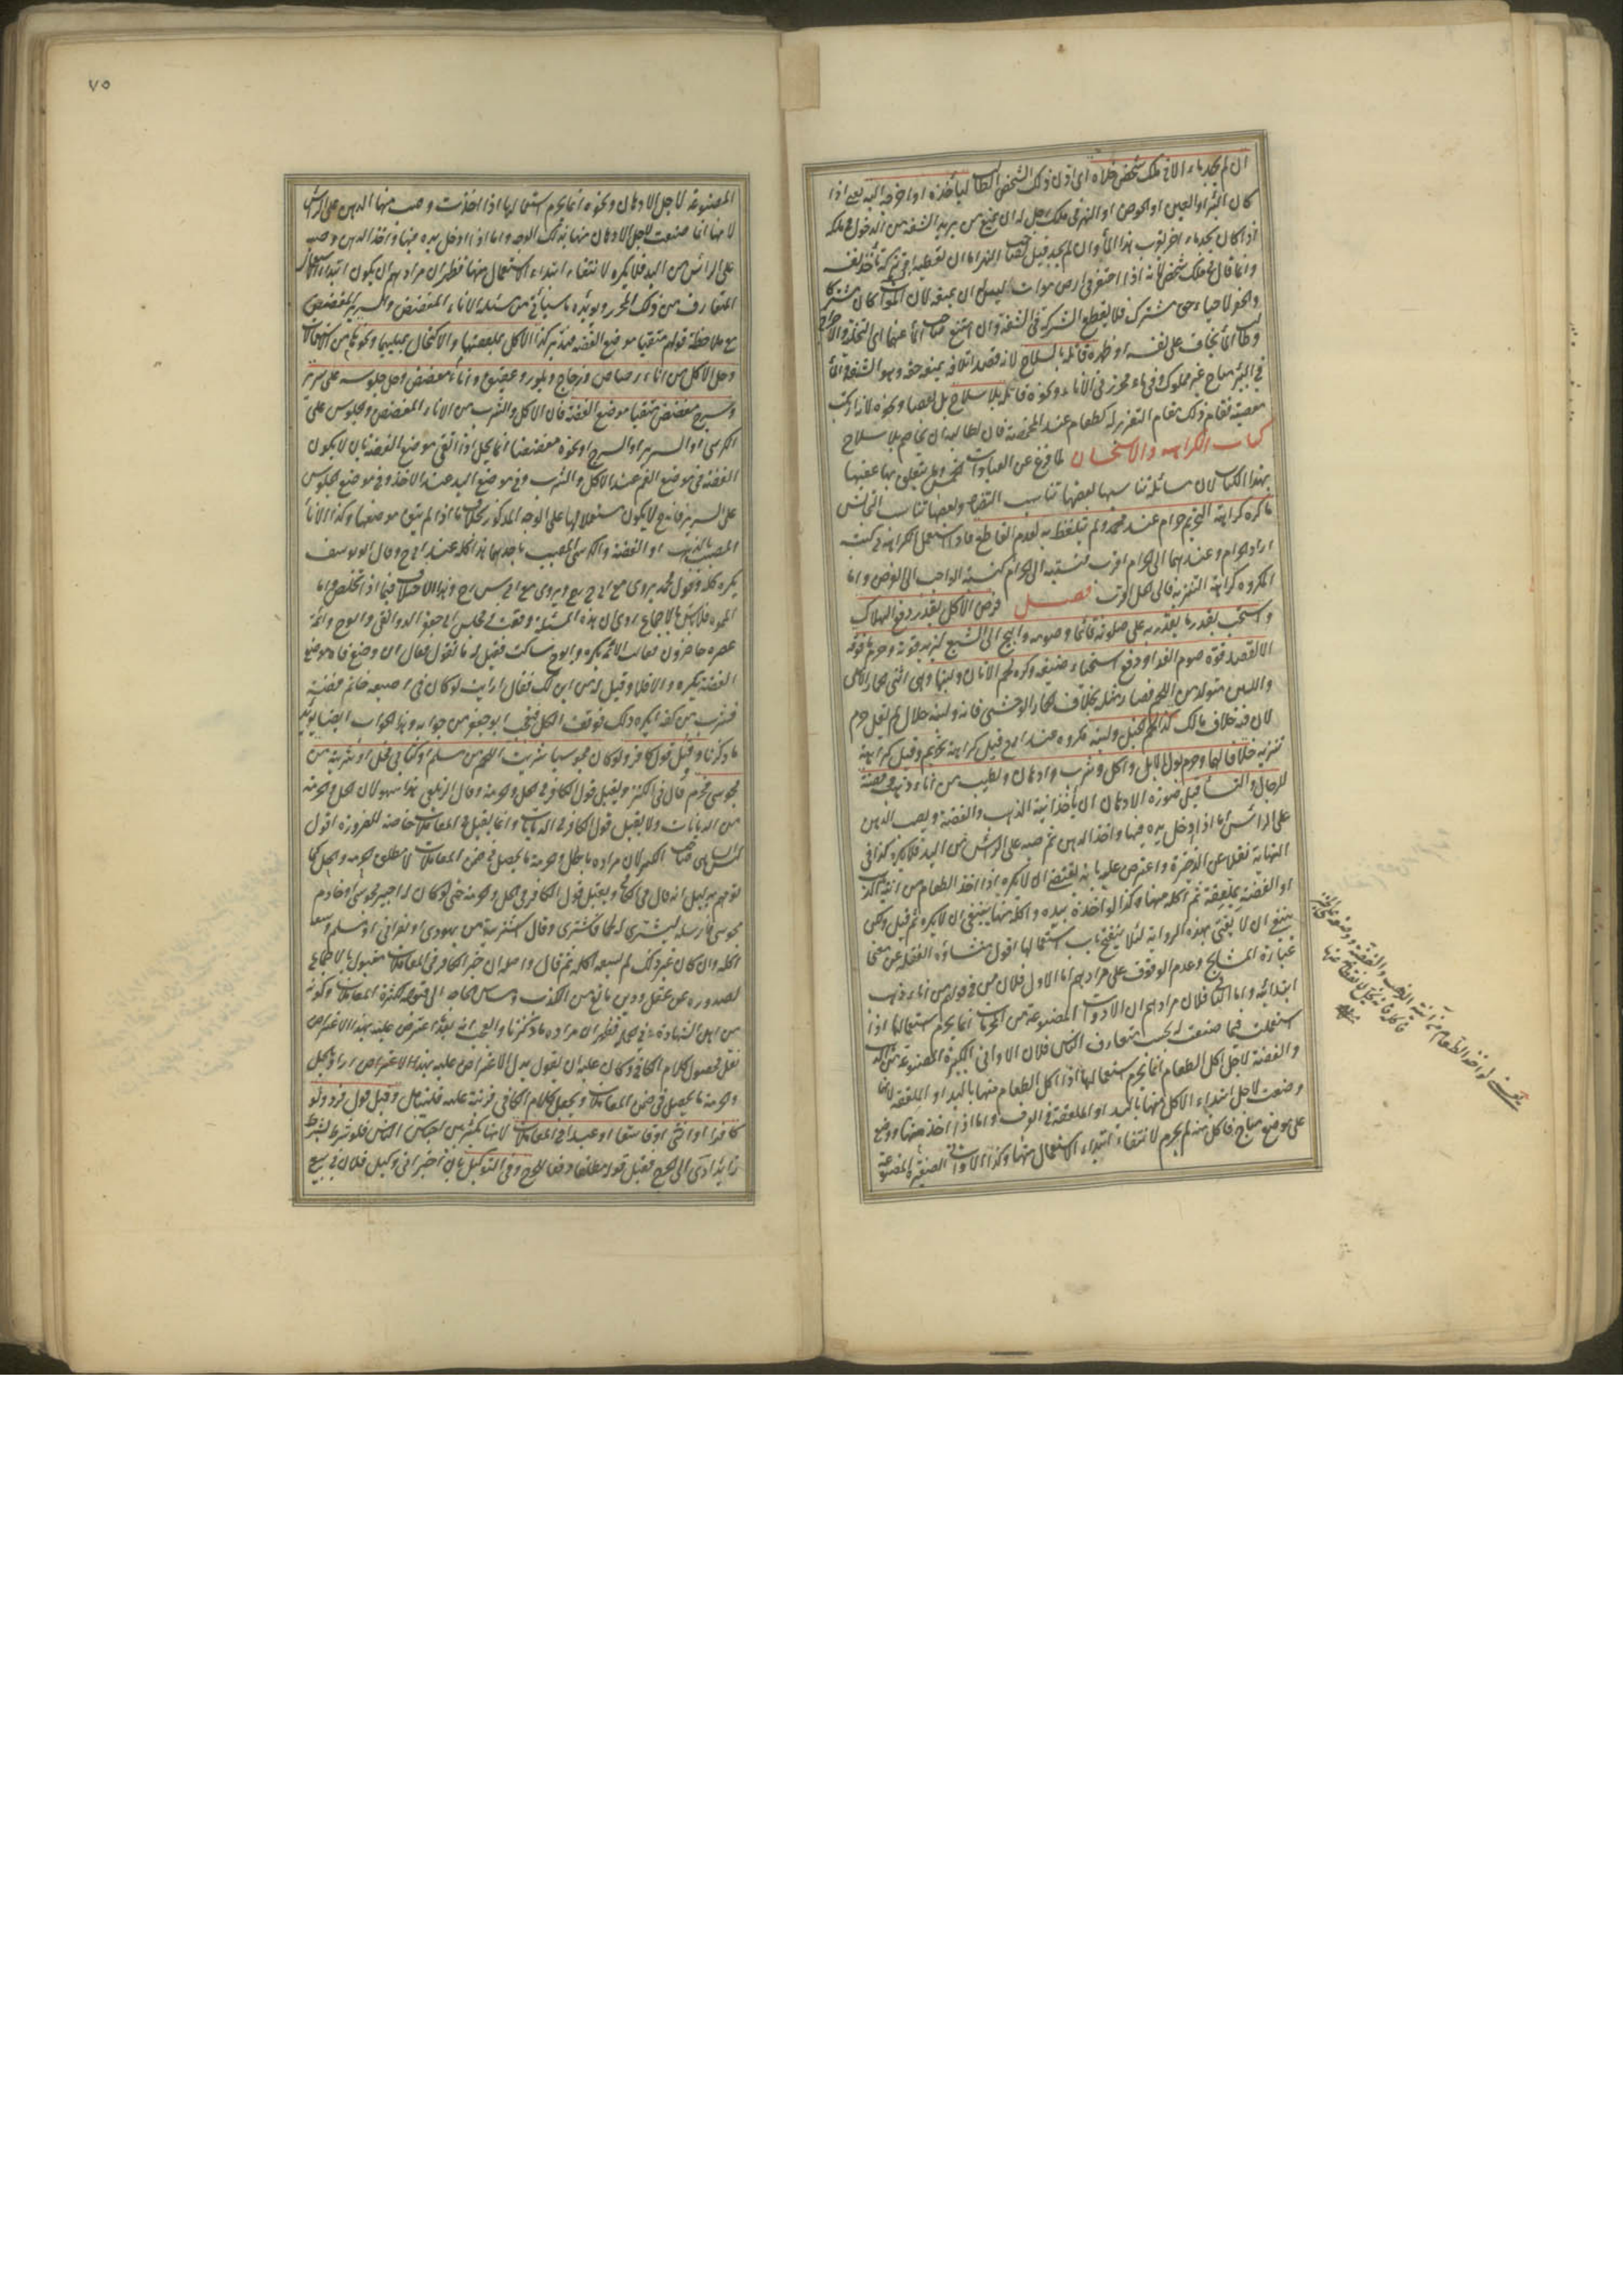 ان لم يجد ماء الا في ملك شخص خلاه اى اذن ذلك الشخص الطالب ليأخذه او اخرجه اليه يعنى اذا
كان البئر او العين او الحوض او النهر فى ملك رجل له ان يمنع من يريد الشفة من الدخول فى ملكه
اذا كان يجد ماء اخر بقرب هذا الماء وان لم يجد قيل لصاحب النهر اما ان تعطيه او تتركه يأخذ بنفسه
وانما قال فى ملك شخص لانه اذا احتفر فى ارض موات ليس له ان يمنعه لان الموات كان مشتركا
والحفر لاحياء حق مشترك فلا يقطع الشركة فى الشفة وان امتنع صاحب الماء عنهما اى التخلية والاخراج
وطالب الماء يخاف على نفسه او ظهره قاتله بالسلاح لانه قصد اتلافه بمنعه حقه وهو الشفة والماء
فى البئر مباح غير مملوك وفى ماء محرز فى الاناء ونحوه قاتله بلا سلاح بل بعصا ونحوه لانه ارتكب
معصية فقام ذلك مقام التعزير له كطعام عند المخمصة فان لطالبه ان يخاصم بلا سلاح
كتاب الكراهية والاستحسان لما فرغ عن العبادات الخمس وما يتعلق بها عقبها
بهذا الكتاب لان مسائله تناسبها بعضها تناسب
ما كره كراهة التحريم حرام عند محمد ولم يتلفظ به لعدم القاطع فاذا استعمل الكراهة فى كتبه
اراد الحرام وعندهما الى الحرام اقرب فنسبته الى الحرام كنسبة الواجب الى الفرض واما
المكروه كراهة التنزيه فالى الحل اقرب فصل فرض الاكل بقدر دفع الهلاك
واستحب بقدر ما يقدر به على صلوته قائما وصومه وابيح الى الشبع ليزيد قوته وحرم ما فوقه
الا لقصد قوة صوم الغد او دفع استحياء ضيفه وكره لحم الاتان ولبنها وهى انثى الحمار الاهلى
واللبن متولد من اللحم فصار مثله بخلاف الحمار الوحشى فانه ولبنه حلال
لان فيه خلاف مالك كذا لحم الخيل ولبنه مكروه عند ابى ح قيل كراهة تحريم وقيل كراهة
تنزيه خلافا لهما وحرم بول الابل واكل وشرب وادهان وتطيب من اناء ذهب وفضة
للرجال والنساء قيل صورة الادهان ان يأخذ انية الذهب والفضة ويصب الدهن
على الرأس اما اذا ادخل يده فيها واخذ الدهن ثم صبه على الرأس من اليد فلا يكره كذا فى
النهاية نقلا عن الذخيرة واعترض عليه بانه يقتضى ان لا يكره اذا اخذ الطعام من انية الذهب
او الفضة بملعقة ثم اكله منها وكذا لو اخذه بيده واكله منها ينبغى ان لا يكره ثم قيل ولكن
ينبغى ان لا يفتى بهذه الرواية لئلا ينفتح باب استعمالها اقول منشأوه الغفلة عن معنى
عبارة المشايخ وعدم الوقوف على مرادهم اما الاول فلان من فى قولهم من اناء ذهب
ابتدائية واما الثانى فلان مرادهم ان الادوات المصنوعة من المحرمات انما يحرم استعمالها اذا
استعملت فيما صنعت له بحسب متعارف الناس فلان الاوانى الكبيرة المصنوعة من الذهب
والفضة لاجل اكل الطعام انما يحرم استعمالها اذا اكل الطعام منها باليد او الملعقة لانها
وضعت لاجل ابتداء الاكل منها باليد او الملعقة فى العرف واما اذا اخذ منها ووضع
على موضع مباح فاكل منه لم يحرم لانتفاء ابتداء الاستعمال منها وكذا الاوانى الصغيرة المصنوعة
لو اخذ الطعام من آنية الذهب والفضة ووضعه على
٧٥
المصنوعة لاجل الادهان ونحوه انما يحرم استعمالها اذا اخذت وصب منها الدهن على الرأس
لانها انما صنعت لاجل الادهان منها بذلك الوجه واما اذا ادخل يده فيها واخذ الدهن وصبه
على الرأس من اليد فلا يكره لانتفاء ابتداء الاستعمال منها فظهر ان مرادهم ان يكون ابتداء الاستعمال
المتعارف من ذلك المحرم ويؤيده ما سيأتى من مسئلة الاناء المفضض والسرير المفضض
مع ملاحظة قولهم متقيا موضع الفضة فتدبر كذا الاكل بملعقتها والاكتحال بميلهما ونحوهما من الاستعمالات
وحل الاكل من اناء رصاص وزجاج وبلور وعقيق واناء مفضض وحل جلوسه على سرير
وسرج مفضض متقيا موضع الفضة فان الاكل والشرب من الاناء المفضض والجلوس على
الكرسى او السرير او السرج او نحوه مفضضا انما يحل اذا اتقى موضع الفضة بان لا يكون
الفضة فى موضع الفم عند الاكل والشرب وفى موضع اليد عند الاخذ وفى موضع الجلوس
على السرير فانه ح لا يكون مستعملا لها على الوجه المذكور بخلاف ما اذا لم يتق موضعها وكذا الاناء
المضبب بالذهب او الفضة والكرسى المضبب باحدهما هذا كله عند ابى ح وقال ابو يوسف
يكره كله وقول محمد يروى مع ابى ح ويروى مع ابى يوسف وهذا الاختلاف فيما اذا تخلص واما
المموه فلا بأس به بالاجماع روى ان هذه المسئلة وقعت فى مجلس ابى جعفر الدوانقى وابو ح وائمة
عصره حاضرون فقالت الائمة يكره وابو ح ساكت فقيل له ما تقول فقال ان وضع فاه موضع
الفضة يكره والا فلا وقيل له من اين لك فقال ارأيت لو كان فى اصبعه خاتم فضة
فشرب من كفه ايكره ذلك فوقف الكل فتعجب ابو جعفر من جوابه وهذا الجواب ايضا يؤيد
ما ذكرنا وقبل قول كافر ولو كان مجوسيا شريت اللحم من مسلم او كتابى فحل او شريته من
مجوسى فحرم قال فى الكنز ويقبل قول الكافر فى الحل والحرمة وقال الزيلعى هذا سهو لان الحل والحرمة
من الديانات ولا يقبل قول الكافر فى الديانات وانما يقبل فى المعاملات خاصة للضرورة اقول
ليس بسهو لان مراده بالحل والحرمة ما يحصل فى ضمن المعاملات لا مطلق الحرمة والحل كما
توهم بدليل انه قال فى الكافى ويقبل قول الكافر فى الحل والحرمة حتى لو كان له اجير مجوسى او خادم
مجوسى فارسله ليشترى له لحما فاشترى وقال اشتريته من يهودى او نصرانى او مسلم وسعه
اكله وان كان غير ذلك لم يسعه اكله ثم قال واصله ان خبر الكافر فى المعاملات مقبول بالاجماع
لصدوره عن عقل ودين مانع من الكذب ومساس الحاجة الى قبوله لكثرة المعاملات وكونه
من اهل الشهادة فى الجملة فظهر ان مراده ما ذكرنا والعجب انه بعدما اعترض عليه بهذا الاعتراض
نقل محصول كلام الكافى وكان عليه ان يقول بدل الاعتراض عليه بهذا الاعتراض اراد بالحل
والحرمة ما يحصل فى ضمن المعاملات ويجعل كلام الكافى قرينة عليه فليتأمل وقبل قول فرد ولو
كافرا او انثى او فاسقا او عبدا فى المعاملات لانها يكثر بين اجناس الناس فلو شرط شرط
زائد ادى الى الحرج فقبل قوله مطلقا دفعا للحرج وفى التوكيل بان اخبر انى وكيل فلان فى بيع